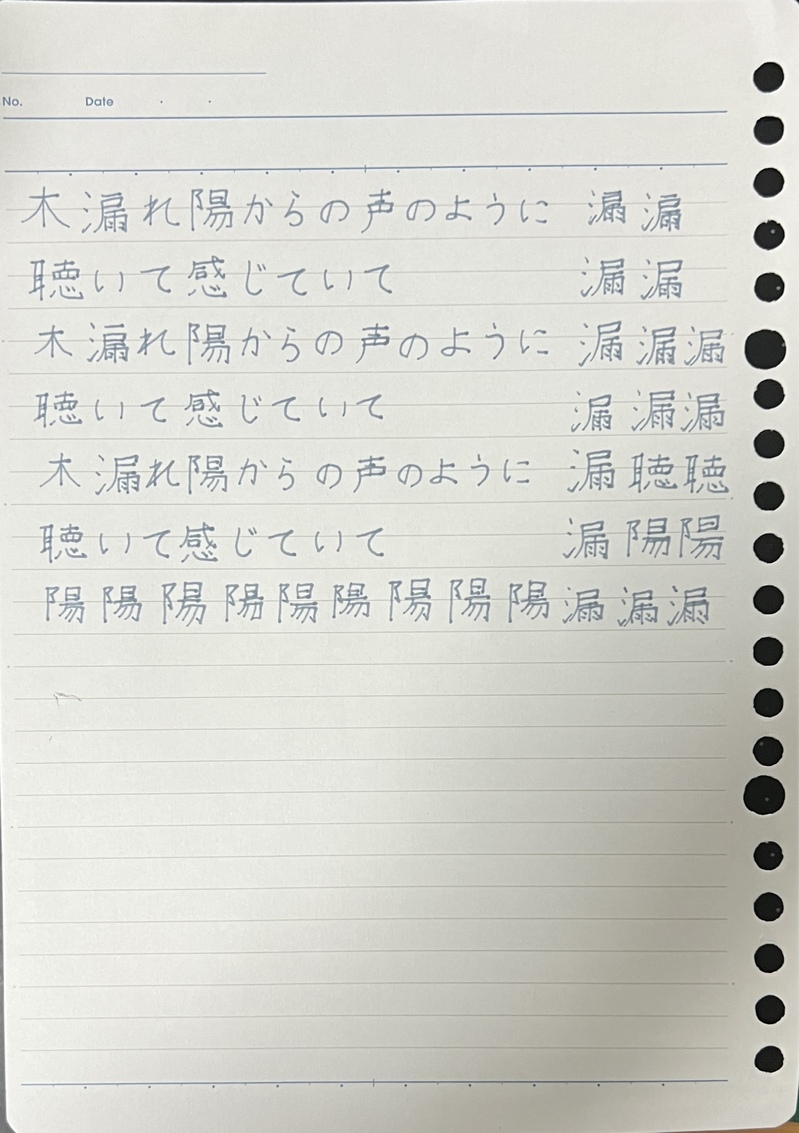 No. Date
木漏れ陽からの声のように 漏漏
聴いて感じていて 漏漏
木漏れ陽からの声のように 漏漏漏
聴いて感じていて 漏漏漏
木漏れ陽からの声のように 漏聴聴
聴いて感じていて 漏陽陽
陽陽陽陽陽陽陽陽陽漏漏漏